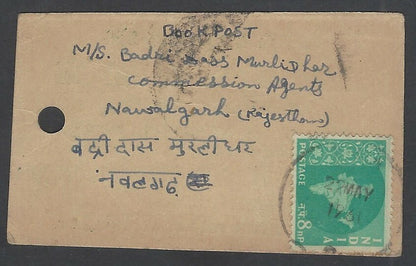 BOOKPOST
M/S. Badri Dass Murlidhar
Commession Agents
Nawalgarh (Rajesthan)
बद्रीदास मुरलीधर
नवलगढ़
POSTAGE
नपै 8 nP
INDIA
MAY